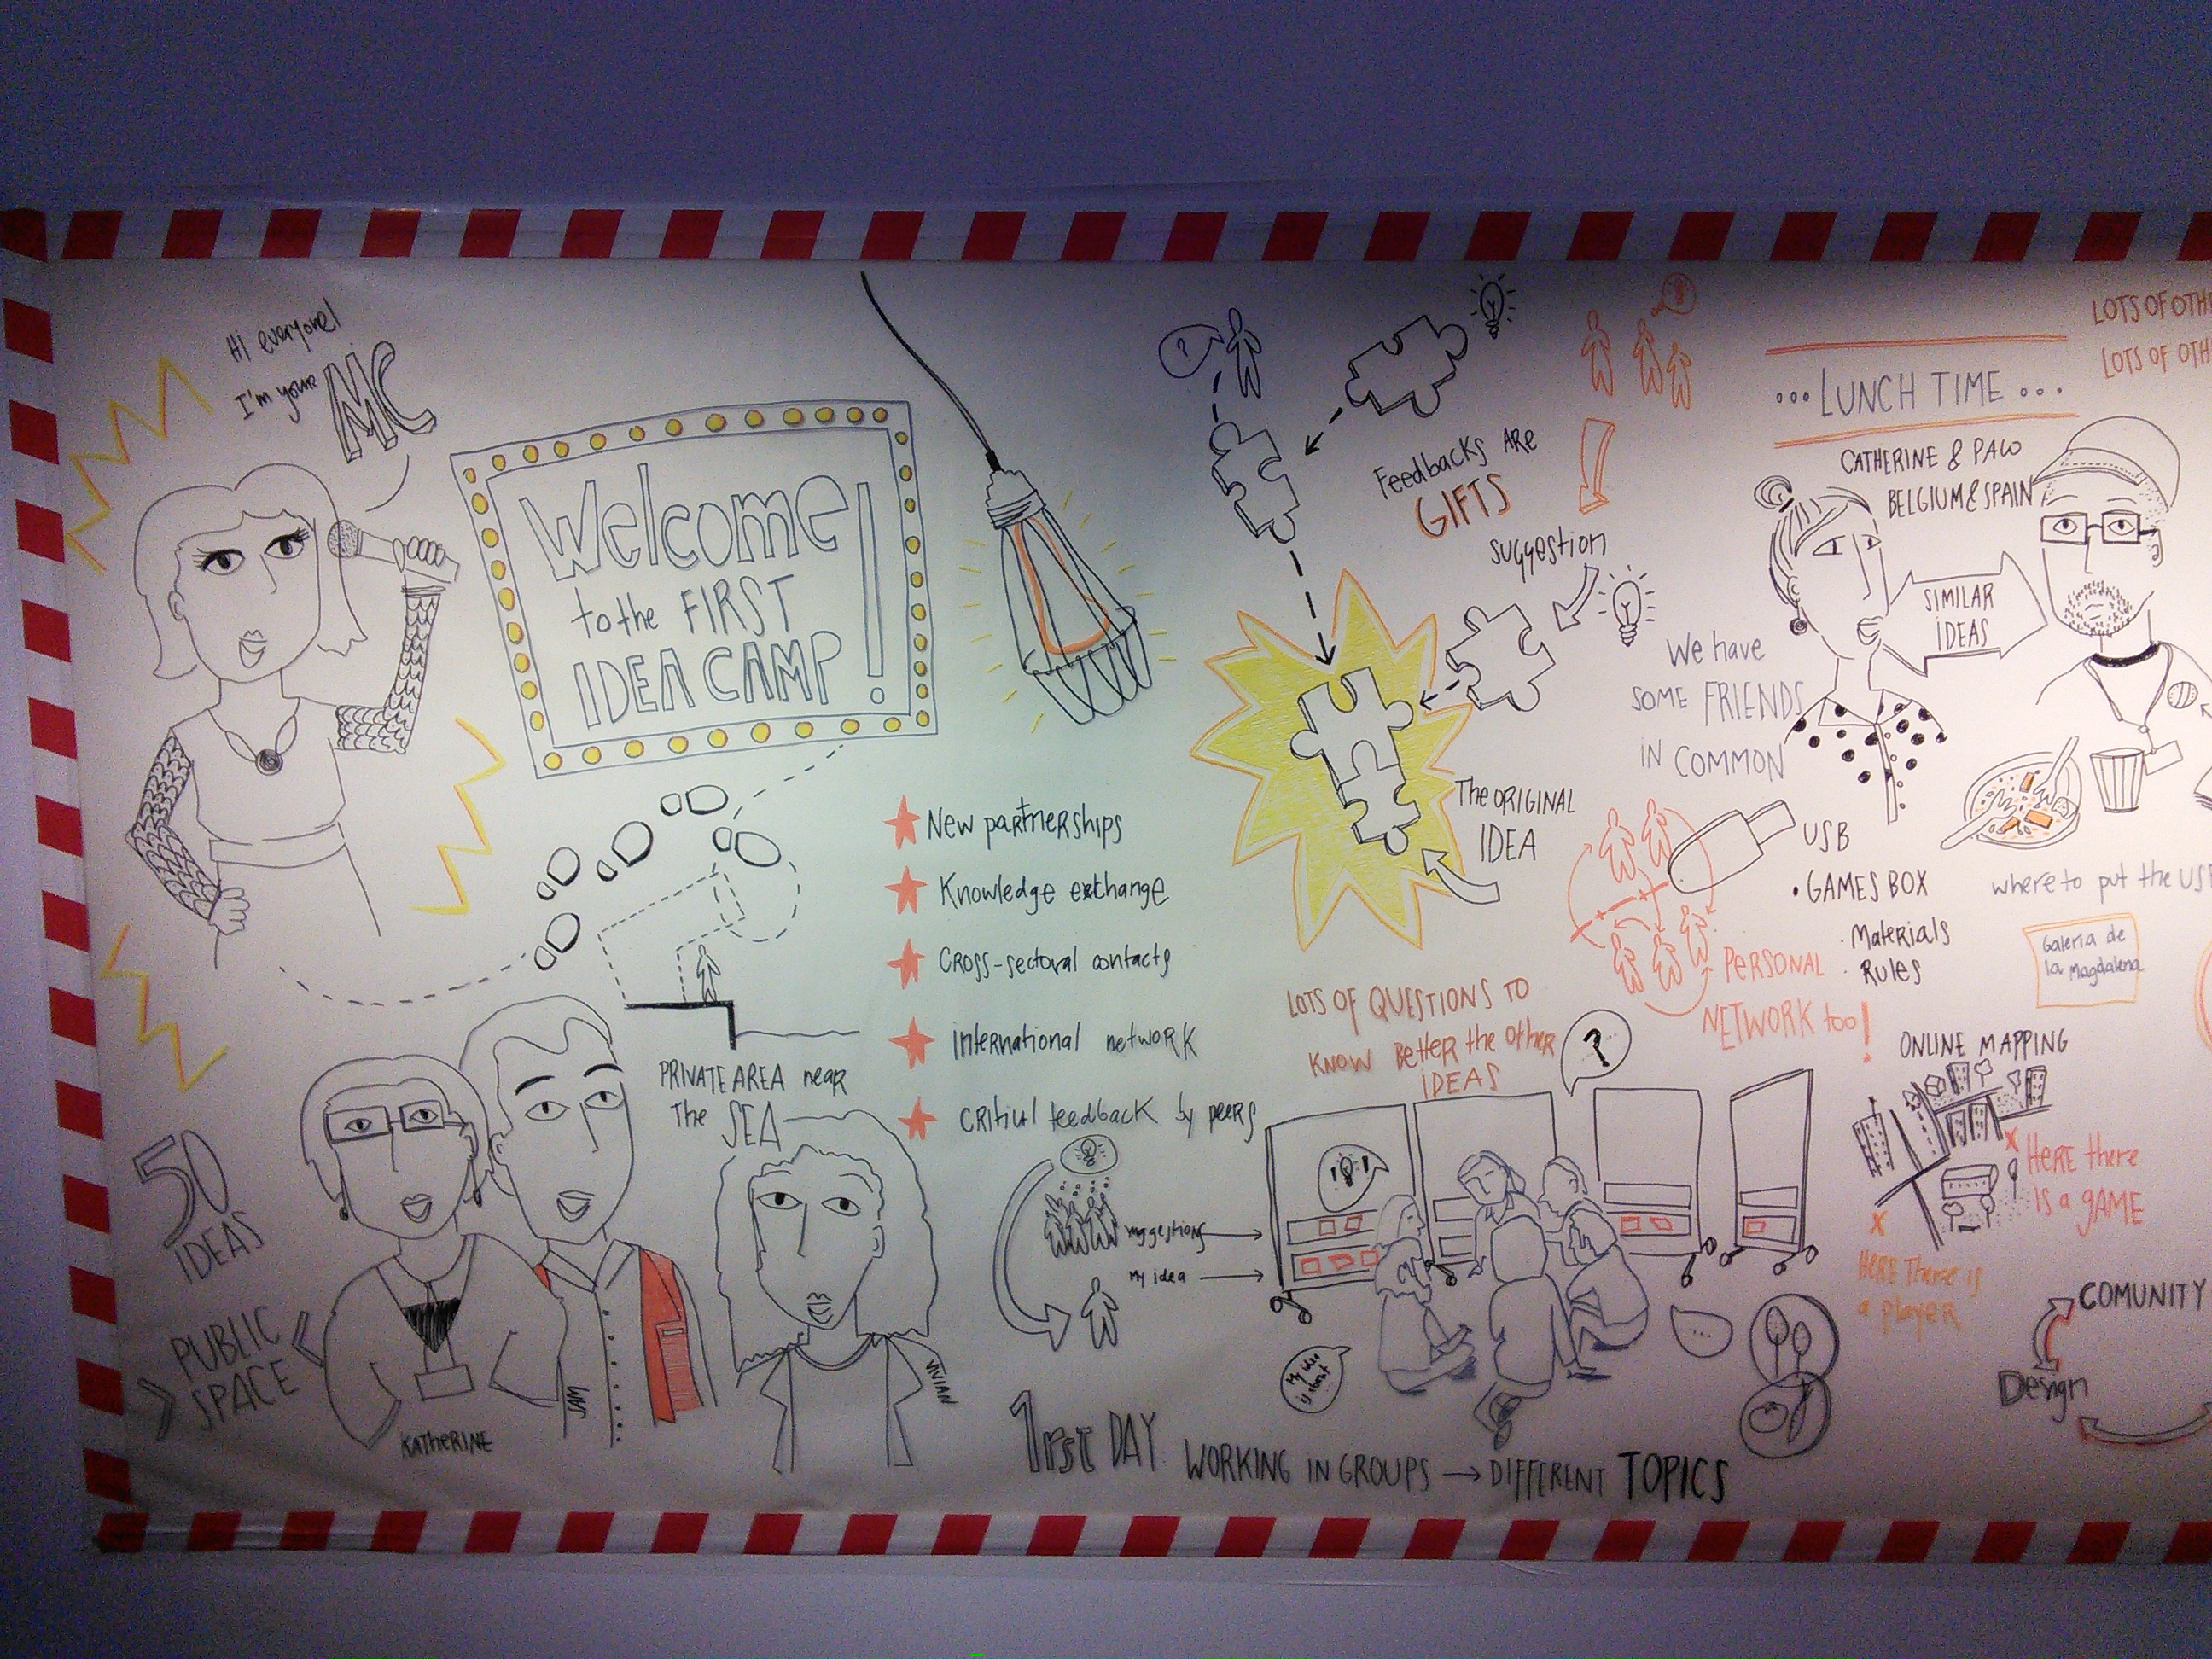 Hi everyone!
I'm your
MC
Welcome!
to the FIRST
IDEA CAMP
New partnerships
Knowledge exchange
Cross-sectoral contacts
International network
Critical feedback by peers
PRIVATE AREA near
The SEA
50
IDEAS
PUBLIC
SPACE
KATHERINE
VIVIAN
suggestions
My idea
1rst DAY
WORKING IN GROUPS → DIFFERENT TOPICS
?
Feedbacks ARE
GIFTS
suggestion
The ORIGINAL
IDEA
LOTS OF QUESTIONS TO
KNOW BETTER the OTHER
IDEAS
?
My idea
is about
...
...LUNCH TIME...
CATHERINE & PACO
BELGIUM & SPAIN
SIMILAR
IDEAS
We have
SOME FRIENDS
IN COMMON
USB
• GAMES BOX
· Materials
· Rules
PERSONAL
NETWORK too!
where to put the
Galeria de
la Magdalena
ONLINE MAPPING
X HERE there
IS a GAME
X
HERE There is
a player
COMUNITY
Design
LOTS OF
LOTS OF